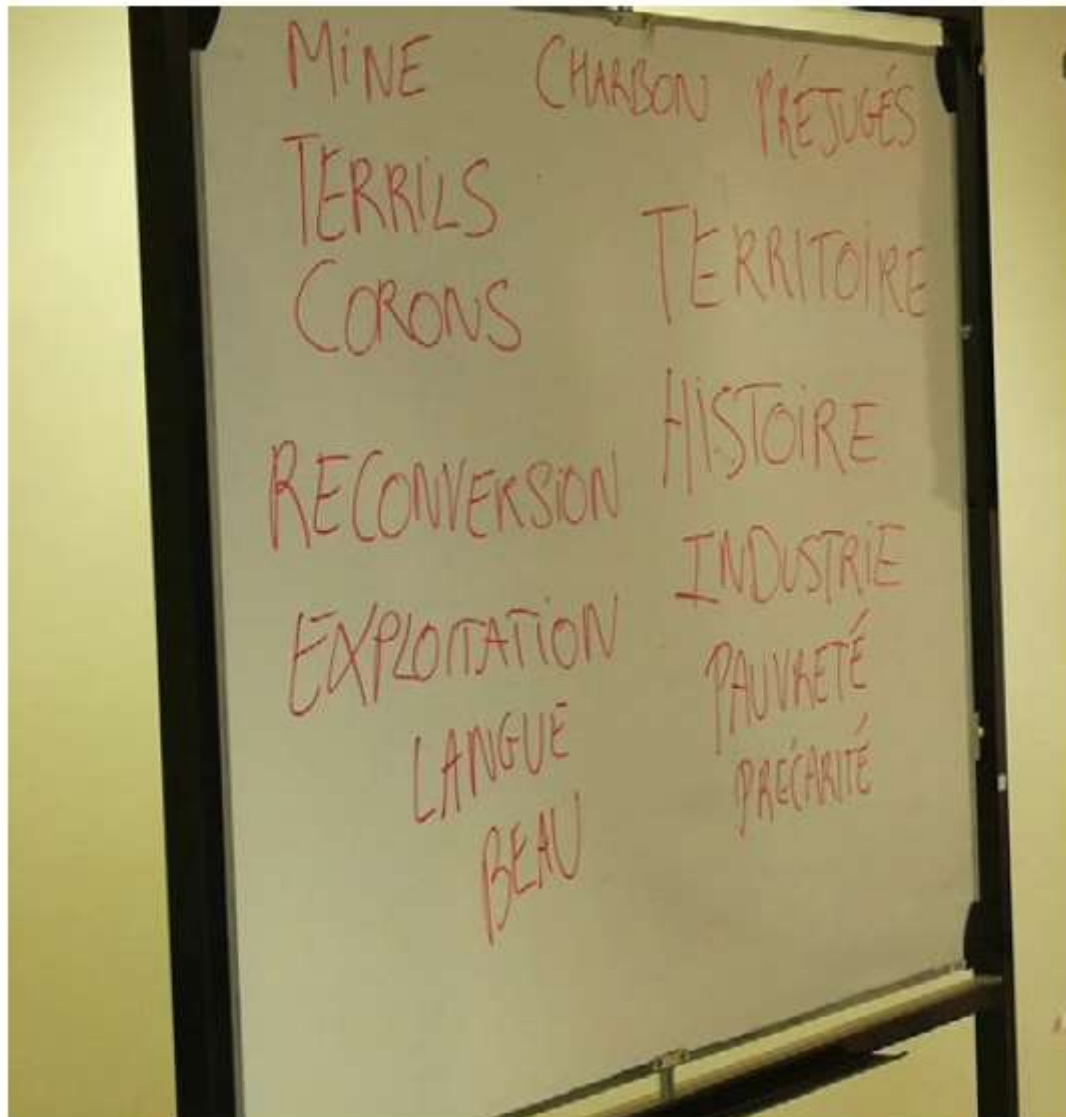 MINE CHARBON PRÉJUGÉS
TERRILS
TERRITOIRE
CORONS
HISTOIRE
RECONVERSION
INDUSTRIE
EXPLOITATION
PAUVRETÉ
LANGUE
PRÉCARITÉ
BEAU